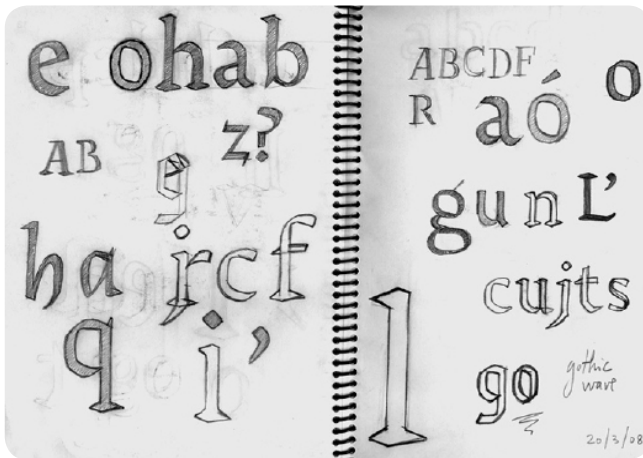 e ohab
AB
z?
e
ha jrcf
q i’
ABCDF
R
aó
o
gun L’
cujts
l
go
gothic
wave
20/3/08